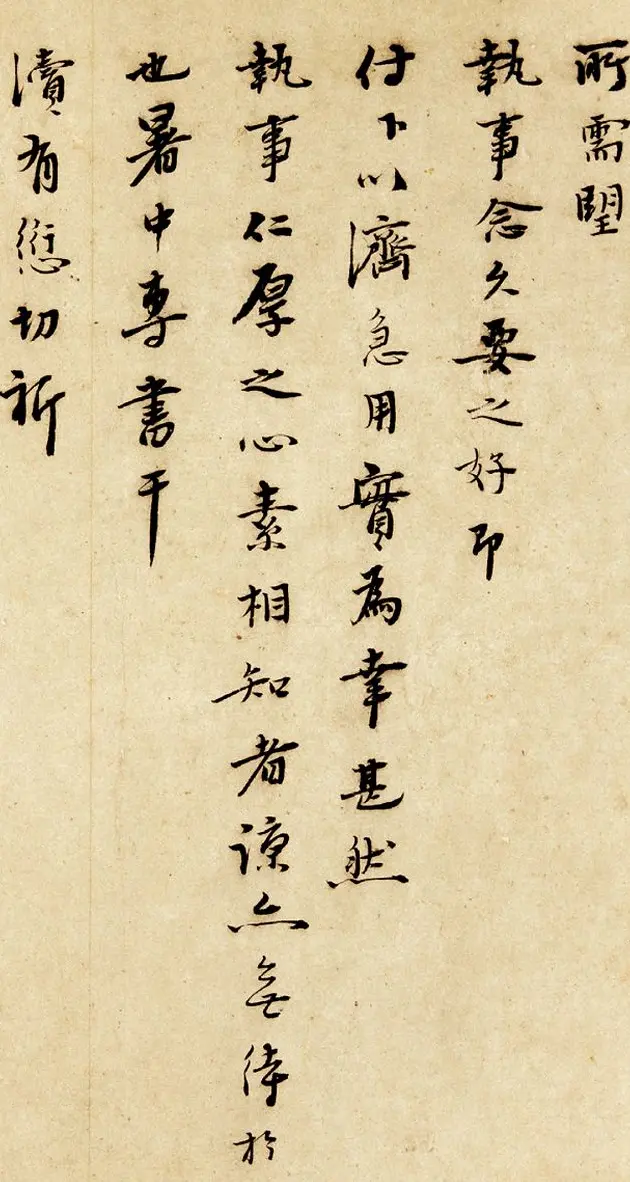 所需朢
執事念久要之好即
付下以濟急用實為幸甚然
執事仁厚之心素相知者諒亦無待於
也暑中專書干
瀆有愆切祈